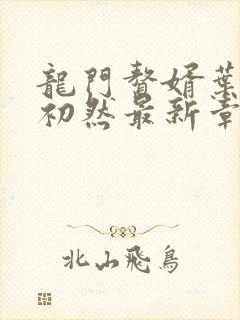 龍門贅婿葉
初然最新章
北山飛鳥